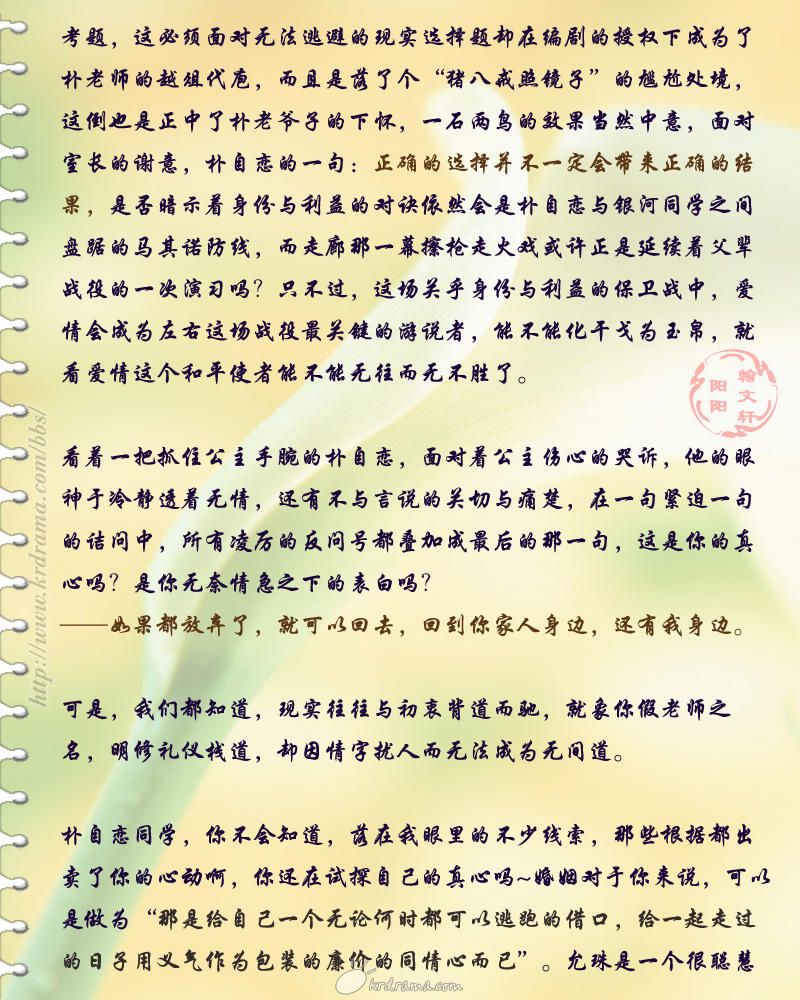 考题，这必须面对无法逃避的现实选择题却在编剧的授权下成为了
朴老师的越俎代庖，而且是落了个“猪八戒照镜子”的尴尬处境，
这倒也是正中了朴老爷子的下怀，一石两鸟的效果当然中意，面对
室长的谢意，朴自恋的一句：正确的选择并不一定会带来正确的结
果，是否暗示着身份与利益的对诀依然会是朴自恋与银河同学之间
盘踞的马其诺防线，而走廊那一幕擦枪走火戏或许正是延续着父辈
战役的一次演习吗？只不过，这场关乎身份与利益的保卫战中，爱
情会成为左右这场战役最关键的游说者，能不能化干戈为玉帛，就
看爱情这个和平使者能不能无往而无不胜了。
看着一把抓住公主手腕的朴自恋，面对着公主伤心的哭诉，他的眼
神于冷静透着无情，还有不与言说的关切与痛楚，在一句紧迫一句
的诘问中，所有凌厉的反问号都叠加成最后的那一句，这是你的真
心吗？是你无奈情急之下的表白吗？
——如果都放弃了，就可以回去，回到你家人身边，还有我身边。
可是，我们都知道，现实往往与初衷背道而驰，就象你假老师之
名，明修礼仪栈道，却因情字扰人而无法成为无间道。
朴自恋同学，你不会知道，落在我眼里的不少线索，那些根据都出
卖了你的心动啊，你还在试探自己的真心吗~婚姻对于你来说，可以
是做为“那是给自己一个无论何时都可以逃跑的借口，给一起走过
的日子用义气作为包装的廉价的同情心而已”。允珠是一个很聪慧
翰文轩
阳阳
http://www.krdrama.com/bbs/
krdrama.com